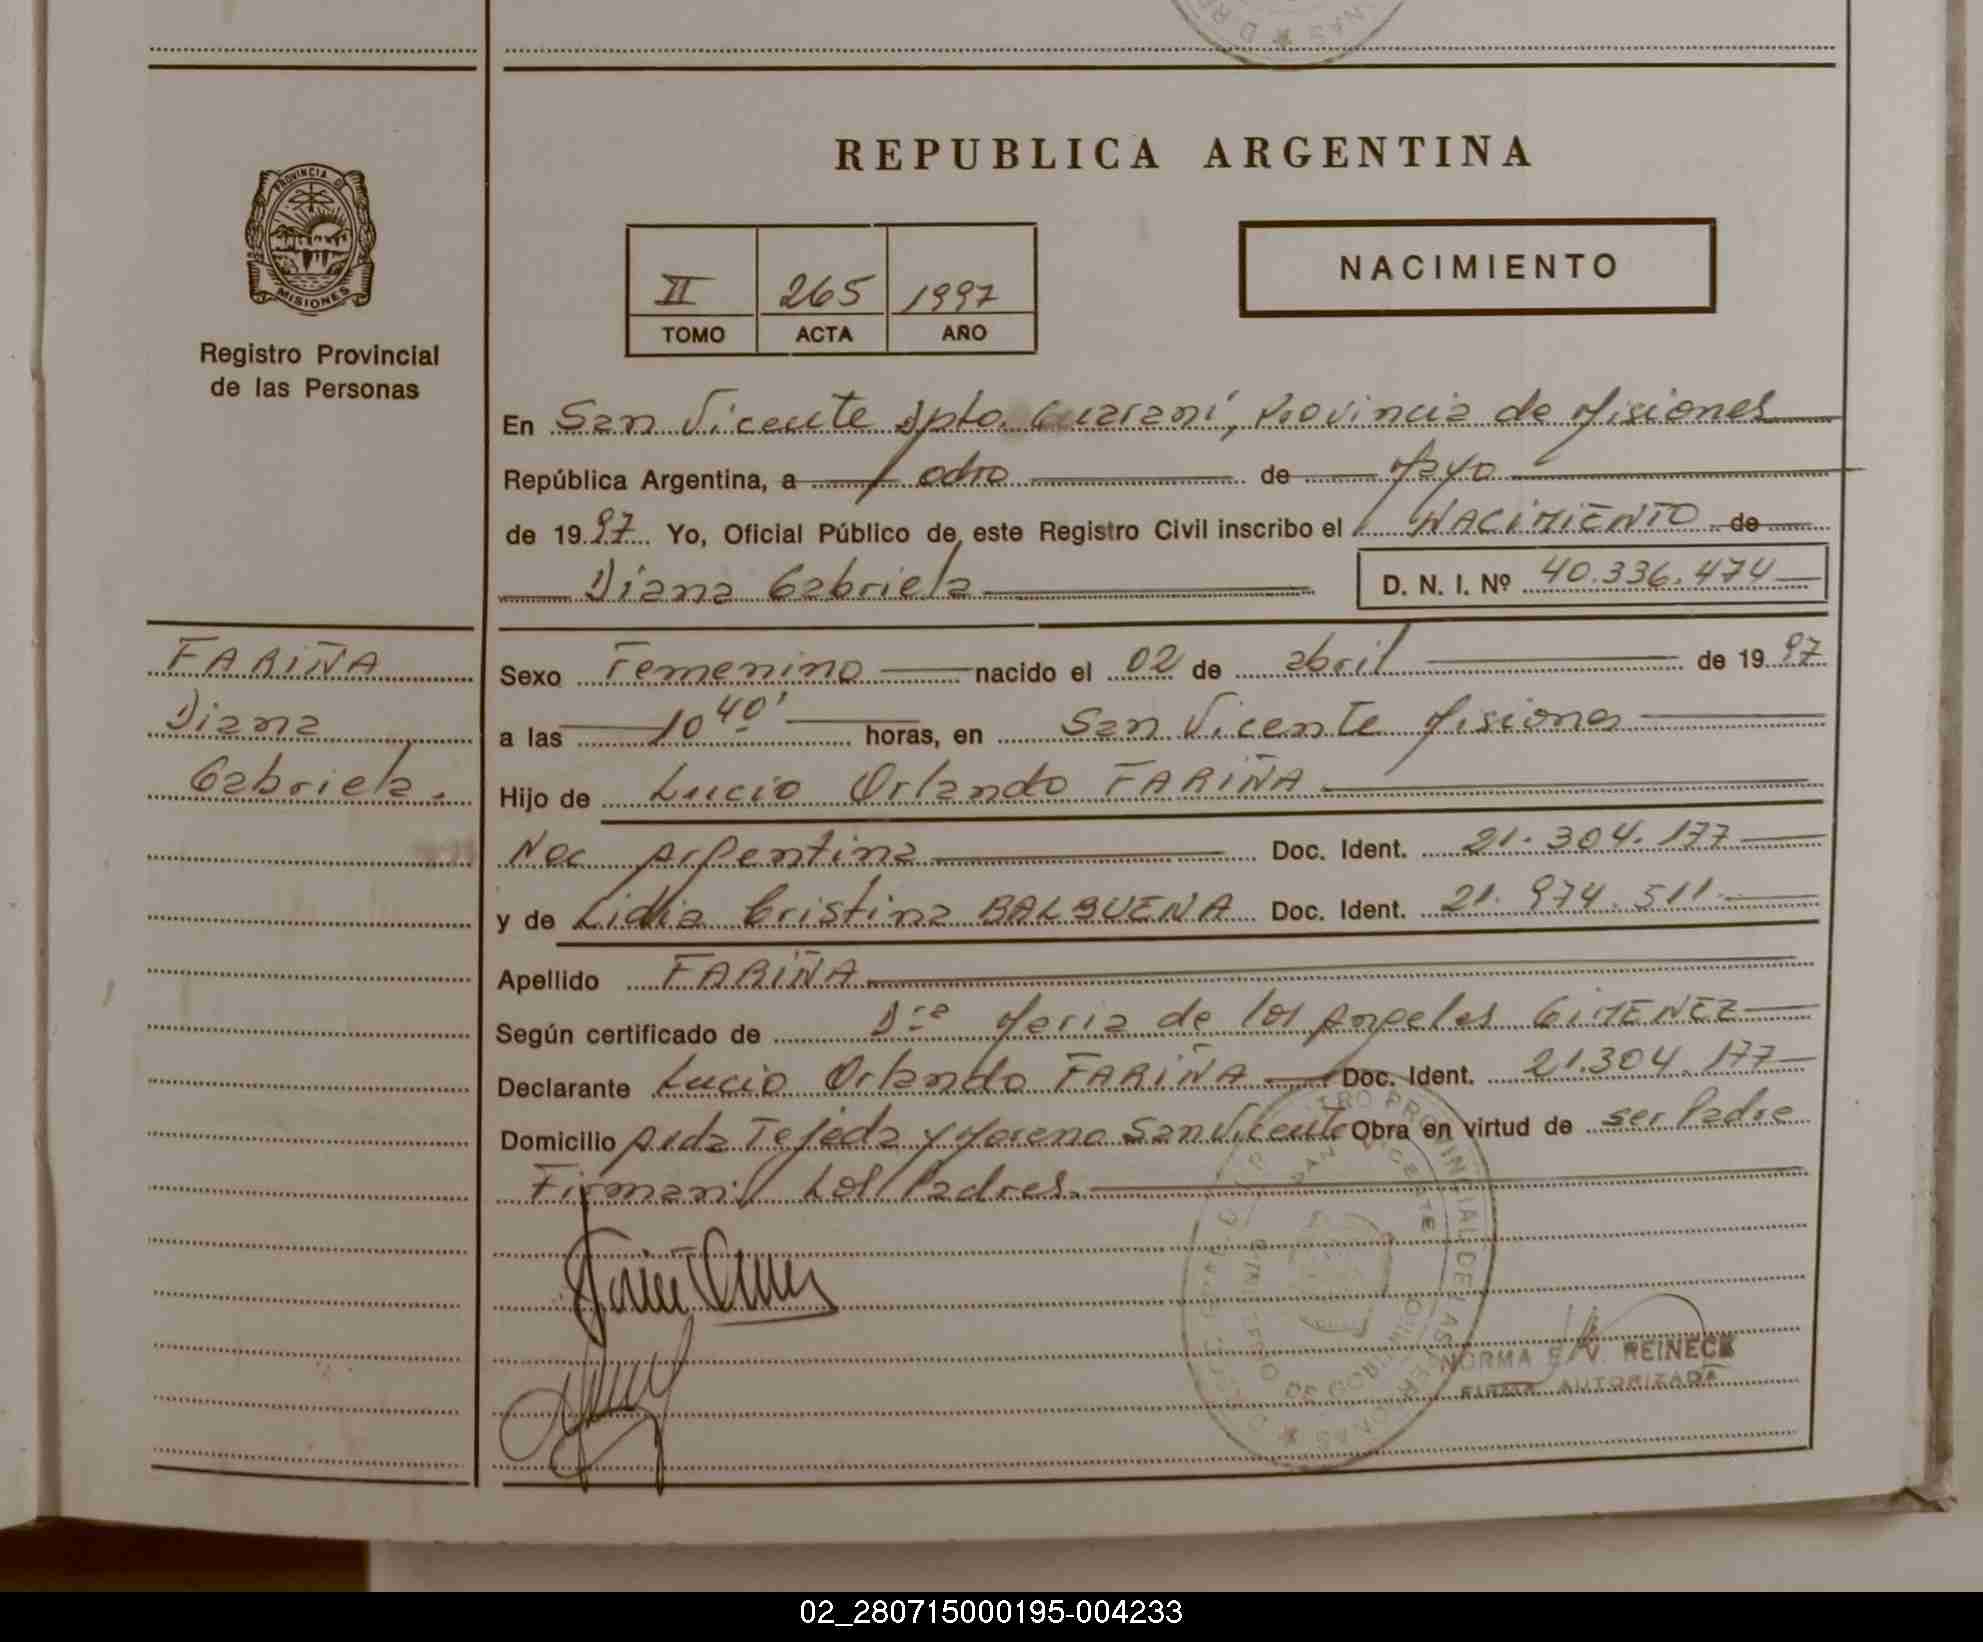 REPUBLICA ARGENTINA
PROVINCIA DE
MISIONES
Registro Provincial
de las Personas
II 265 1997
TOMO ACTA AÑO
NACIMIENTO
En San Vicente Dpto. Guaraní, Provincia de Misiones
República Argentina, a ocho de Mayo
de 1997 Yo, Oficial Público de este Registro Civil inscribo el NACIMIENTO de
Diana Gabriela D. N. I. Nº 40.336.474
FARIÑA
Diana
Gabriela.
Sexo Femenino nacido el 02 de abril de 1997
a las 10 40' horas, en San Vicente Misiones
Hijo de Lucio Orlando FARIÑA
Nac Argentina Doc. Ident. 21.304.177
y de Lidia Cristina BALBUENA Doc. Ident. 21.974.511
Apellido FARIÑA
Según certificado de Dra Maria de los Angeles GIMENEZ
Declarante Lucio Orlando FARIÑA Doc. Ident. 21.304.177
Domicilio Avda Tejeda y Moreno San Vicente Obra en virtud de ser Padre
Firman: Los Padres.
NORMA E. V. REINECK
FIRMA AUTORIZADA
02_280715000195-004233